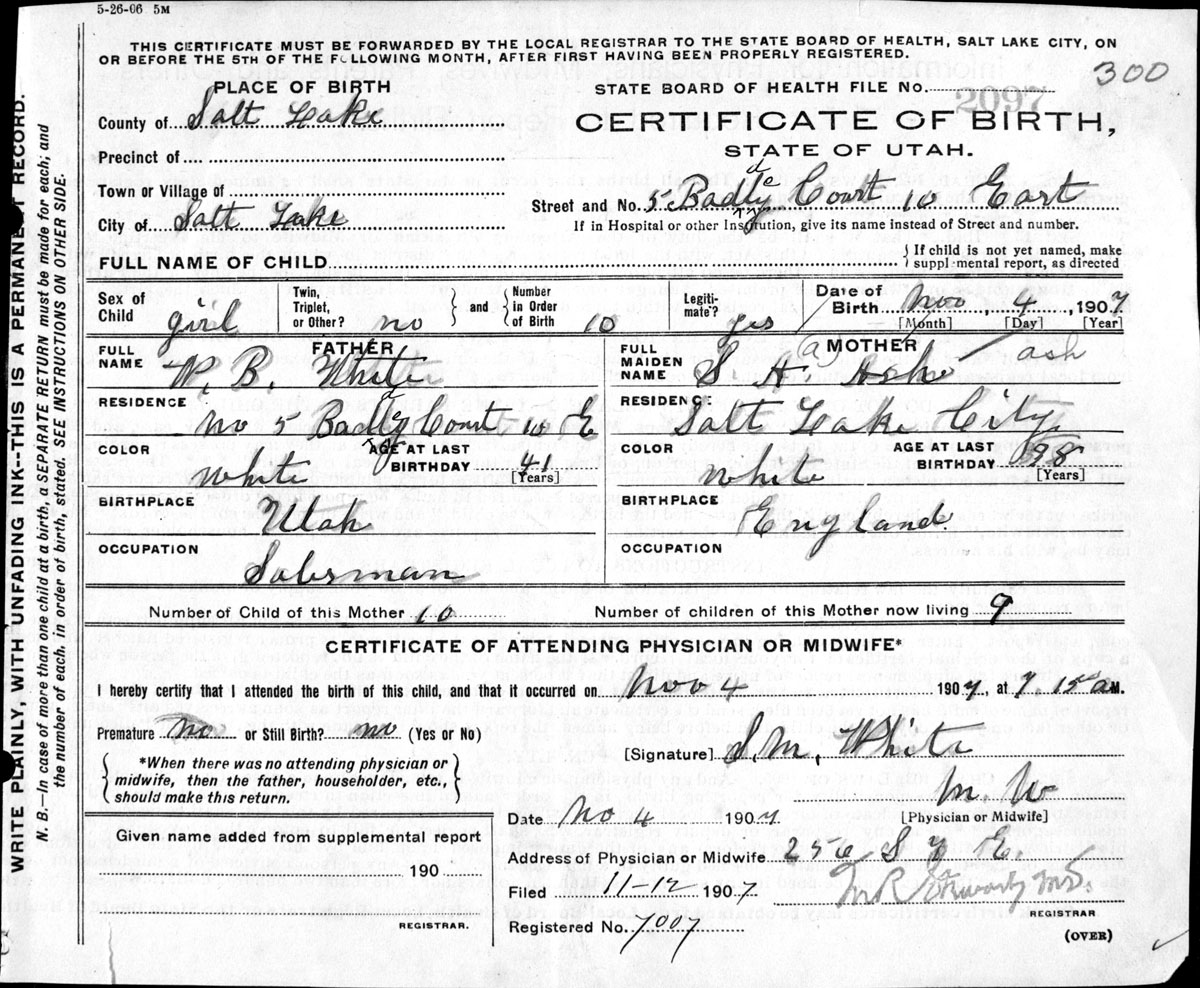 5-26-06 5M
THIS CERTIFICATE MUST BE FORWARDED BY THE LOCAL REGISTRAR TO THE STATE BOARD OF HEALTH, SALT LAKE CITY, ON
OR BEFORE THE 5TH OF THE FOLLOWING MONTH, AFTER FIRST HAVING BEEN PROPERLY REGISTERED.
300
PLACE OF BIRTH
STATE BOARD OF HEALTH FILE No. 2097
County of Salt Lake
CERTIFICATE OF BIRTH,
STATE OF UTAH.
Precinct of
Town or Village of
Street and No. 5 Badly Court 10 East
City of Salt Lake
If in Hospital or other Institution, give its name instead of Street and number.
FULL NAME OF CHILD
If child is not yet named, make
supplemental report, as directed
Sex of Child girl
Twin, Triplet, or Other? no
and Number in Order of Birth 10
Legitimate? yes
Date of Birth Nov 4, 1907
[Month] [Day] [Year]
FATHER
FULL NAME W. B. White
RESIDENCE No 5 Badly Court 10 E
COLOR white
AGE AT LAST BIRTHDAY 41
[Years]
BIRTHPLACE Utah
OCCUPATION Salesman
MOTHER
FULL MAIDEN NAME S A (a) Ash ash
RESIDENCE Salt Lake City
COLOR white
AGE AT LAST BIRTHDAY
[Years]
BIRTHPLACE England
OCCUPATION
Number of Child of this Mother 10
Number of children of this Mother now living 9
CERTIFICATE OF ATTENDING PHYSICIAN OR MIDWIFE*
I hereby certify that I attended the birth of this child, and that it occurred on Nov 4 1907, at 7.15 a M.
Premature no or Still Birth? no (Yes or No)
[Signature] S. M. White
*When there was no attending physician or
midwife, then the father, householder, etc.,
should make this return.
M. W
[Physician or Midwife]
Date No 4 1907
Given name added from supplemental report
190
REGISTRAR.
Address of Physician or Midwife 256 S E.
Filed 11-12 1907
REGISTRAR
Registered No. 7007
(OVER)
WRITE PLAINLY, WITH UNFADING INK--THIS IS A PERMANENT RECORD.
N. B.—In case of more than one child at a birth, a SEPARATE RETURN must be made for each; and
the number of each, in order of birth, stated. SEE INSTRUCTIONS ON OTHER SIDE.